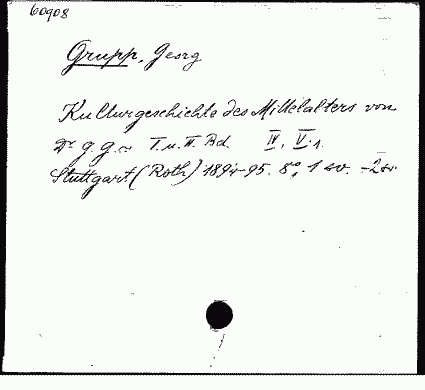 60908
Grupp, Georg
Kulturgeschichte des Mittelalters von
Dr G. G. I. u. II. Bd. IV, V.1.
Stuttgart (Roth) 1894-95. 8°, 1 sv. -2 sv.